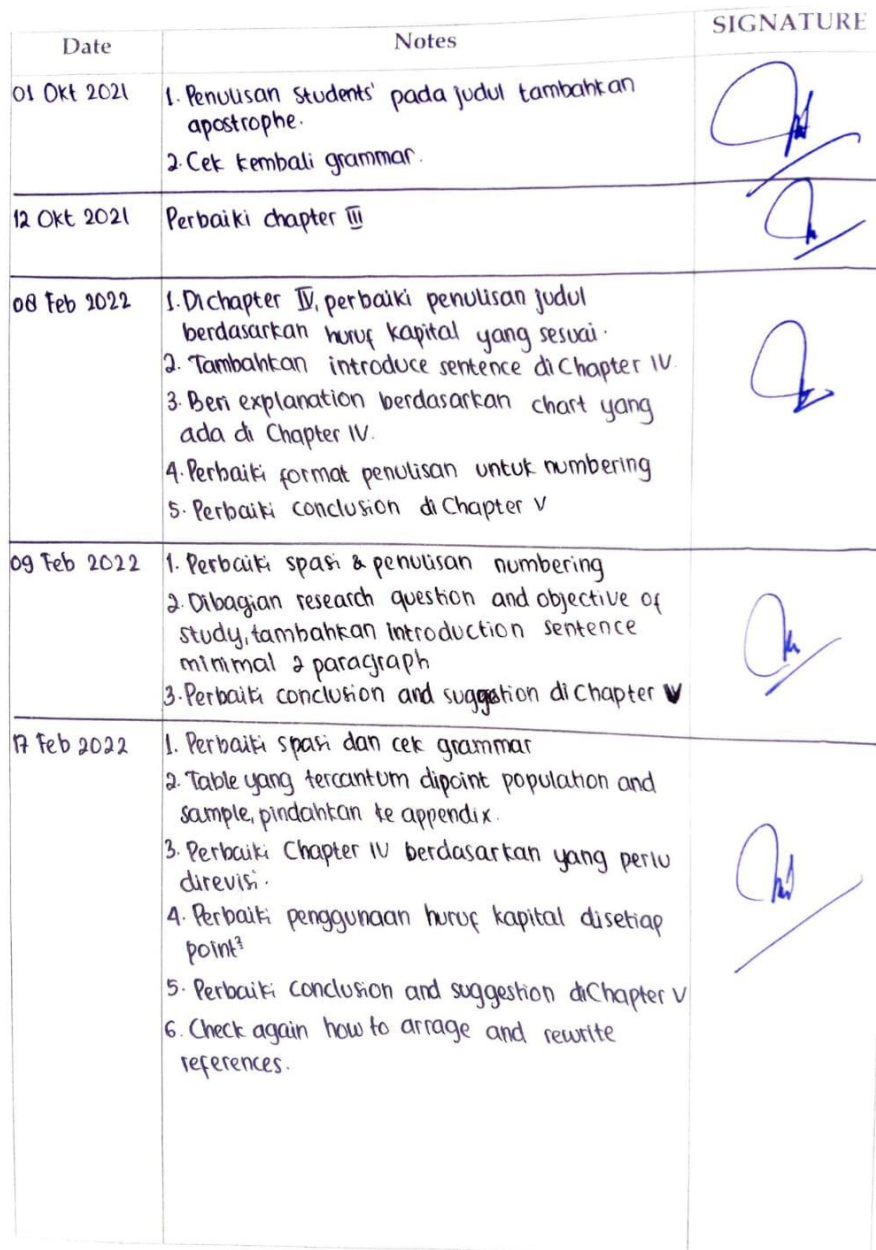 Date Notes SIGNATURE
01 Okt 2021 1. Penulisan Students' pada judul tambahkan
apostrophe.
2. Cek kembali grammar.
12 Okt 2021 Perbaiki chapter III
08 Feb 2022 1. Dichapter IV, perbaiki penulisan judul
berdasarkan huruf kapital yang sesuai.
2. Tambahkan introduce sentence di Chapter IV.
3. Beri explanation berdasarkan chart yang
ada di Chapter IV.
4. Perbaiki format penulisan untuk numbering
5. Perbaiki conclusion di Chapter V
09 Feb 2022 1. Perbaiki spasi & penulisan numbering
2. Dibagian research question and objective of
study, tambahkan introduction sentence
minimal 2 paragraph
3. Perbaiki conclusion and suggestion di Chapter V
17 Feb 2022 1. Perbaiki spasi dan cek grammar
2. Table yang tercantum dipoint population and
sample, pindahkan ke appendix.
3. Perbaiki Chapter IV berdasarkan yang perlu
direvisi.
4. Perbaiki penggunaan huruf kapital disetiap
point²
5. Perbaiki conclusion and suggestion diChapter V
6. Check again how to arrage and rewrite
references.